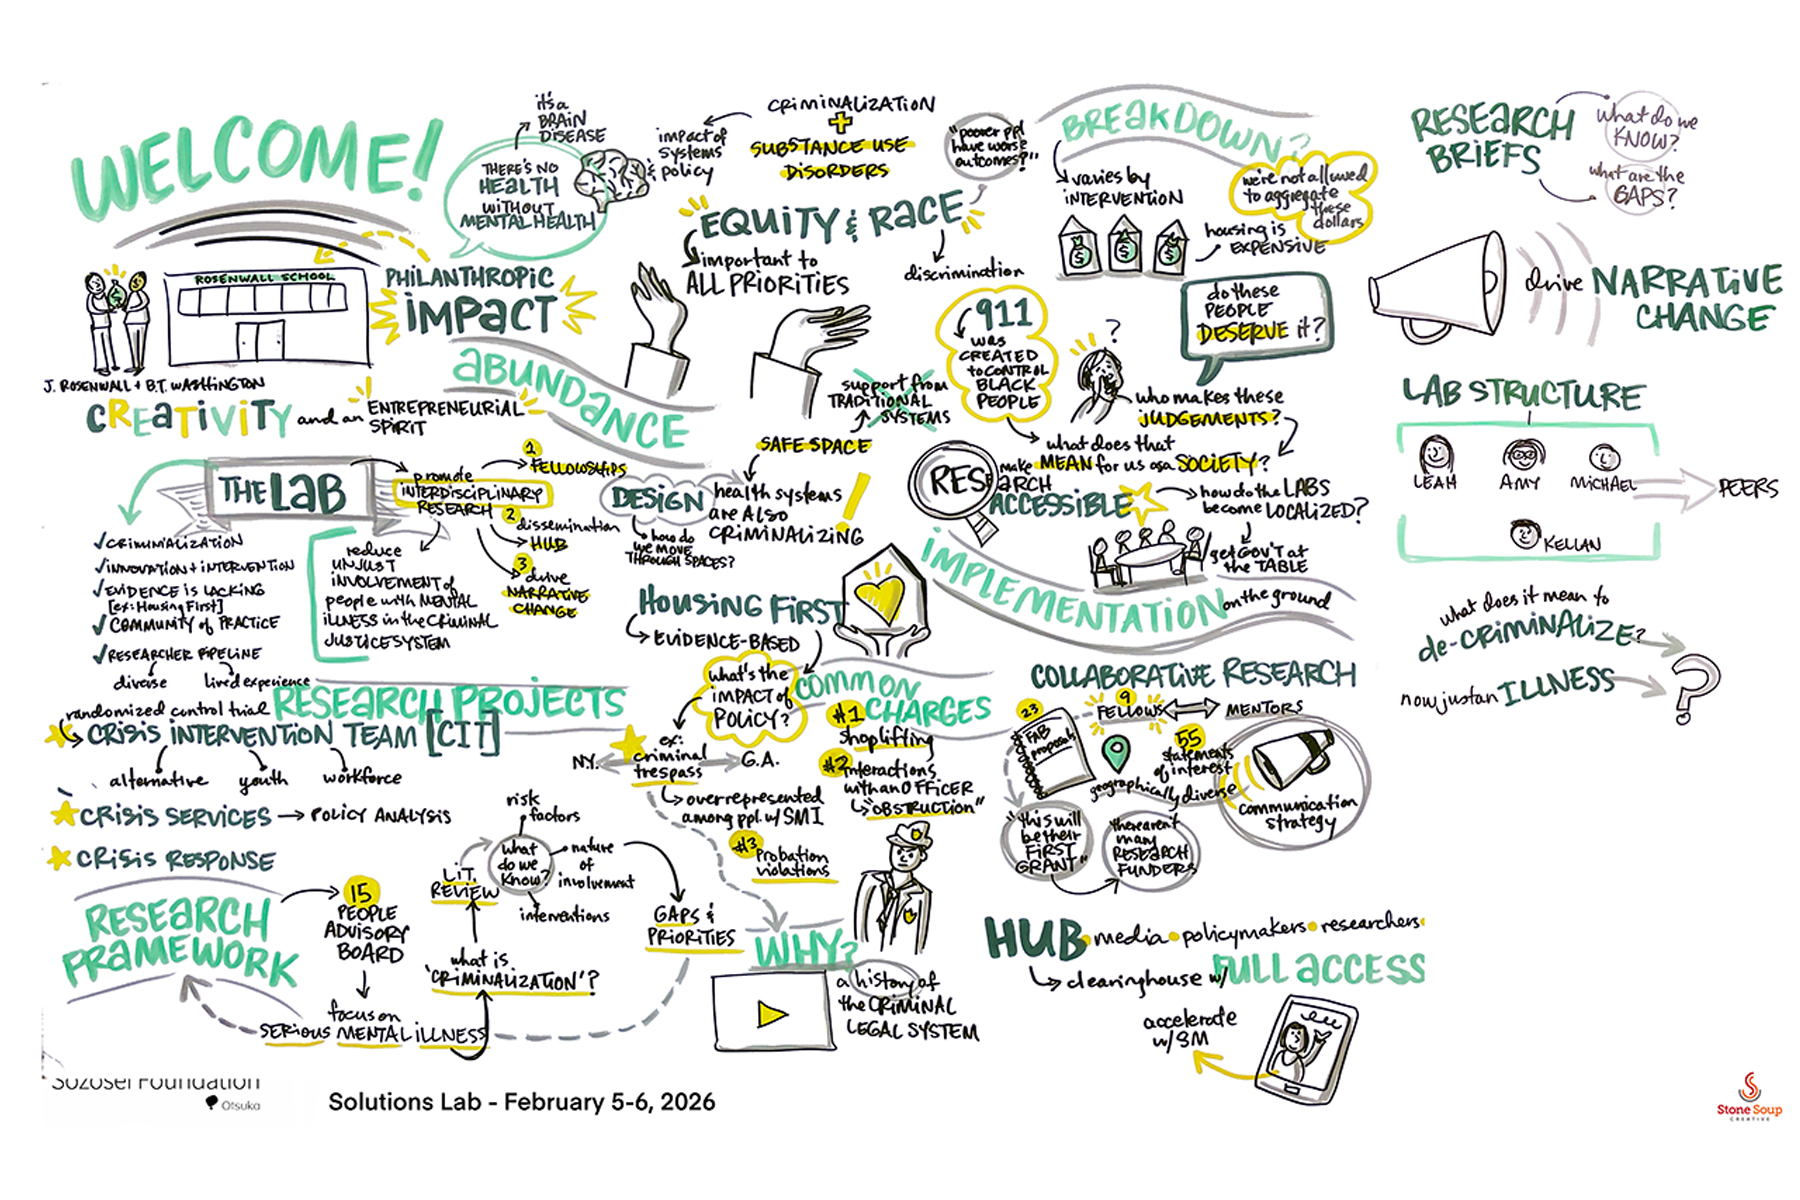 WELCOME!
it's a
BRAIN
DISEASE
THERE'S NO
HEALTH
WITHOUT
MENTAL HEALTH
ROSENWALL SCHOOL
J. ROSENWALL + B.T. WASHINGTON
PHILANTHROPIC
IMPACT
CREATIVITY and an ENTREPRENEURIAL
SPIRIT
ABUNDANCE
CRIMINALIZATION
+
SUBSTANCE USE
DISORDERS
impact of
systems
& policy
"poorer ppl
have worse
outcomes?"
EQUITY & RACE
important to
ALL PRIORITIES
discrimination
911
was
CREATED
to CONTROL
BLACK
PEOPLE
support from
TRADITIONAL
SYSTEMS
SAFE SPACE
DESIGN
how do
we move
THROUGH SPACES?
health systems
are Also
CRIMINALIZING!
BREAKDOWN?
varies by
INTERVENTION
we're not allowed
to aggregate
these
dollars
housing is
EXPENSIVE
do these
PEOPLE
DESERVE it?
?
who makes these
JUDGEMENTS?
what does that
MEAN for us as a SOCIETY?
make
RESEARCH
ACCESSIBLE
how do the LABS
become LOCALIZED?
get GOV'T at
the TABLE
IMPLEMENTATION on the ground
THE LAB
promote
INTERDISCIPLINARY
RESEARCH
1
FELLOWSHIPS
2
dissemination
HUB
3
drive
NARRATIVE
CHANGE
CRIMINALIZATION
INNOVATION + INTERVENTION
EVIDENCE is LACKING
[ex: Housing First]
COMMUNITY of PRACTICE
RESEARCHER PIPELINE
diverse
lived experience
reduce
UNJUST
INVOLVEMENT of
people with MENTAL
ILLNESS in the CRIMINAL
JUSTICE SYSTEM
RESEARCH PROJECTS
randomized control trial
CRISIS INTERVENTION TEAM [CIT]
alternative
youth
workforce
CRISIS SERVICES → POLICY ANALYSIS
CRISIS RESPONSE
HOUSING FIRST
EVIDENCE-BASED
what's the
IMPACT of
POLICY?
ex:
criminal
trespass
N.Y.
G.A.
overrepresented
among ppl. w/ SMI
COMMON
CHARGES
#1
shoplifting
#2 interactions
with an OFFICER
"OBSTRUCTION"
#3
Probation
violations
RESEARCH
FRAMEWORK
15
PEOPLE
ADVISORY
BOARD
focus on
SERIOUS MENTAL ILLNESS
what is
'CRIMINALIZATION'?
LIT.
REVIEW
what
do we
know?
risk
factors
nature
of
involvement
interventions
GAPS &
PRIORITIES
WHY?
a history of
the CRIMINAL
LEGAL SYSTEM
COLLABORATIVE RESEARCH
23
FAB
proposals
9
FELLOWS
MENTORS
55
statements
of interest
geographically diverse
communication
strategy
"this will
be their
FIRST
GRANT"
there aren't
many
RESEARCH
FUNDERS
HUB • media • policymakers • researchers •
clearinghouse w/ FULL ACCESS
accelerate
w/ SM
RESEARCH
BRIEFS
what do we
KNOW?
what are the
GAPS?
drive NARRATIVE
CHANGE
LAB STRUCTURE
LEAH
AMY
MICHAEL
PEERS
KELLAN
what does it mean to
de-CRIMINALIZE?
now just an ILLNESS
?
Sozosei Foundation
Otsuka
Solutions Lab - February 5-6, 2026
Stone Soup
CREATIVE